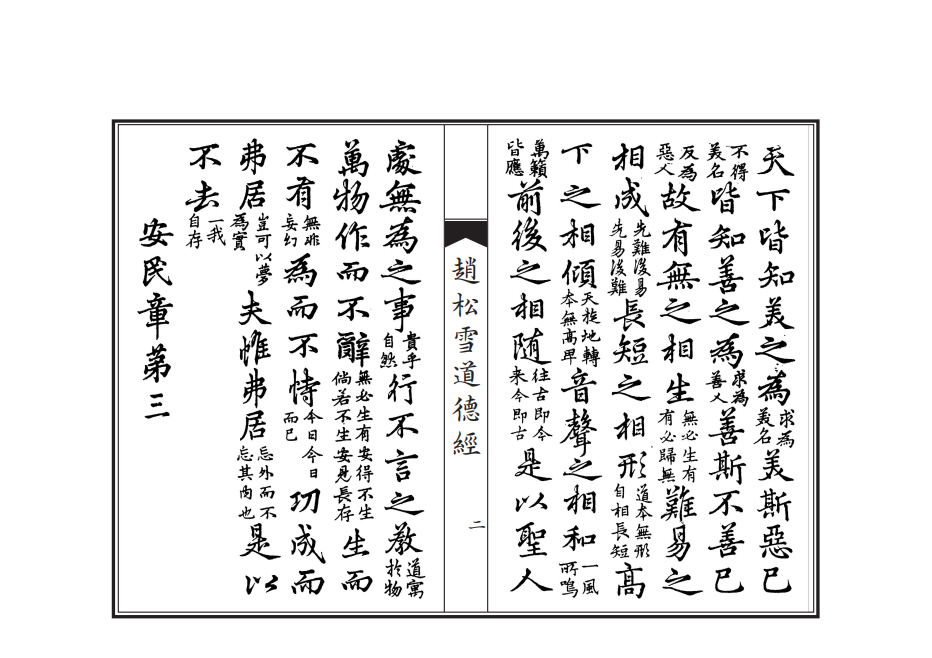 天下皆知美之為求為美名美斯惡已
不得美名皆知善之為求為善人善斯不善已
反為惡人故有無之相生無必生有有必歸無難易之
相成先難後易先易後難長短之相形道本無形自相長短高
下之相傾天旋地轉本無高卑音聲之相和一風所鳴
萬籟皆應前後之相隨往古即今来今即古是以聖人
處無為之事貴乎自然行不言之教道寓於物
萬物作而不辭無必生有安得不生倘若不生安見長存生而
不有無非妄幻為而不恃今日今日而已功成而
弗居豈可以夢為實夫惟弗居忘外而不忘其內也是以
不去一我自存
安民章第三
趙松雪道德經
二